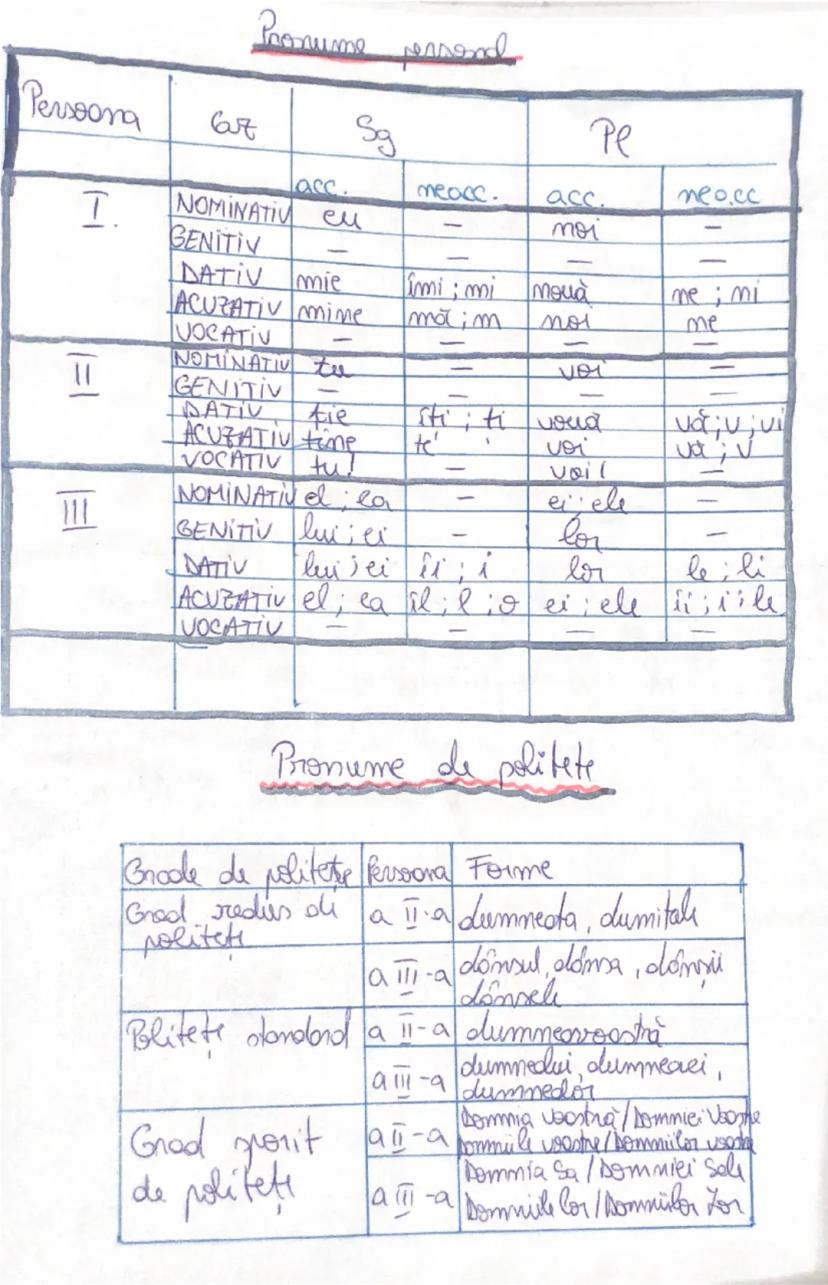 Pronume personal
Persoana Caz Sg Pl
acc. neacc. acc. neacc
I. NOMINATIV eu — noi —
GENITIV — — — —
DATIV mie îmi ; mi nouă ne ; ni
ACUZATIV mine mă ; m noi ne
VOCATIV — — — —
II NOMINATIV tu — voi —
GENITIV — — — —
DATIV ție îti ; ti vouă vă ; v ; vi
ACUZATIV tine te voi vă ; v
VOCATIV tu! — voi! —
III NOMINATIV el ; ea — ei ; ele —
GENITIV lui ; ei — lor —
DATIV lui ; ei îi ; i lor le ; li
ACUZATIV el ; ea îl ; l ; o ei ; ele îi ; i ; le
VOCATIV — — — —
Pronume de politețe
Grade de politețe Persoana Forme
Grad redus de politețe a II-a dumneata, dumitale
a III-a dânsul, dânsa, dânșii
dânsele
Politețe standard a II-a dumneavoastră
a III-a dumnealui, dumneaei,
dumnealor
Grad sporit de politețe a II-a Domnia Voastră / Domniei Voastre
Domniile voastre / Domniilor voastre
a III-a Domnia Sa / Domniei Sale
Domniile lor / Domniilor Lor